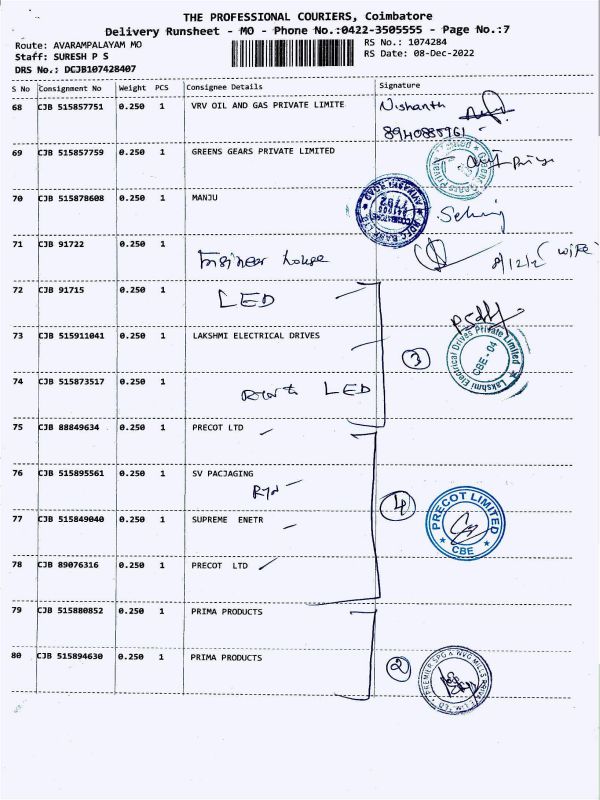 THE PROFESSIONAL COURIERS, Coimbatore
Delivery Runsheet - MO - Phone No.:0422-3505555 - Page No.:7
Route: AVARAMPALAYAM MO
RS No.: 1074284
Staff: SURESH P S
RS Date: 08-Dec-2022
DRS No.: DCJB107428407
S No Consignment No Weight PCS Consignee Details Signature
68 CJB 515857751 0.250 1 VRV OIL AND GAS PRIVATE LIMITE Nishanth
8940885961
69 CJB 515857759 0.250 1 GREENS GEARS PRIVATE LIMITED
70 CJB 515878608 0.250 1 MANJU
71 CJB 91722 0.250 1 Engineer house
8/12/2 (wife)
72 CJB 91715 0.250 1 LED
73 CJB 515911041 0.250 1 LAKSHMI ELECTRICAL DRIVES
Lakshmi Electrical Drives Private Limited
CBE - 04
3
74 CJB 515873517 0.250 1 LED
75 CJB 88849634 0.250 1 PRECOT LTD
76 CJB 515895561 0.250 1 SV PACJAGING
77 CJB 515849040 0.250 1 SUPREME ENETR
4
PRECOT LIMITED
CBE
78 CJB 89076316 0.250 1 PRECOT LTD
79 CJB 515880852 0.250 1 PRIMA PRODUCTS
80 CJB 515894630 0.250 1 PRIMA PRODUCTS
2